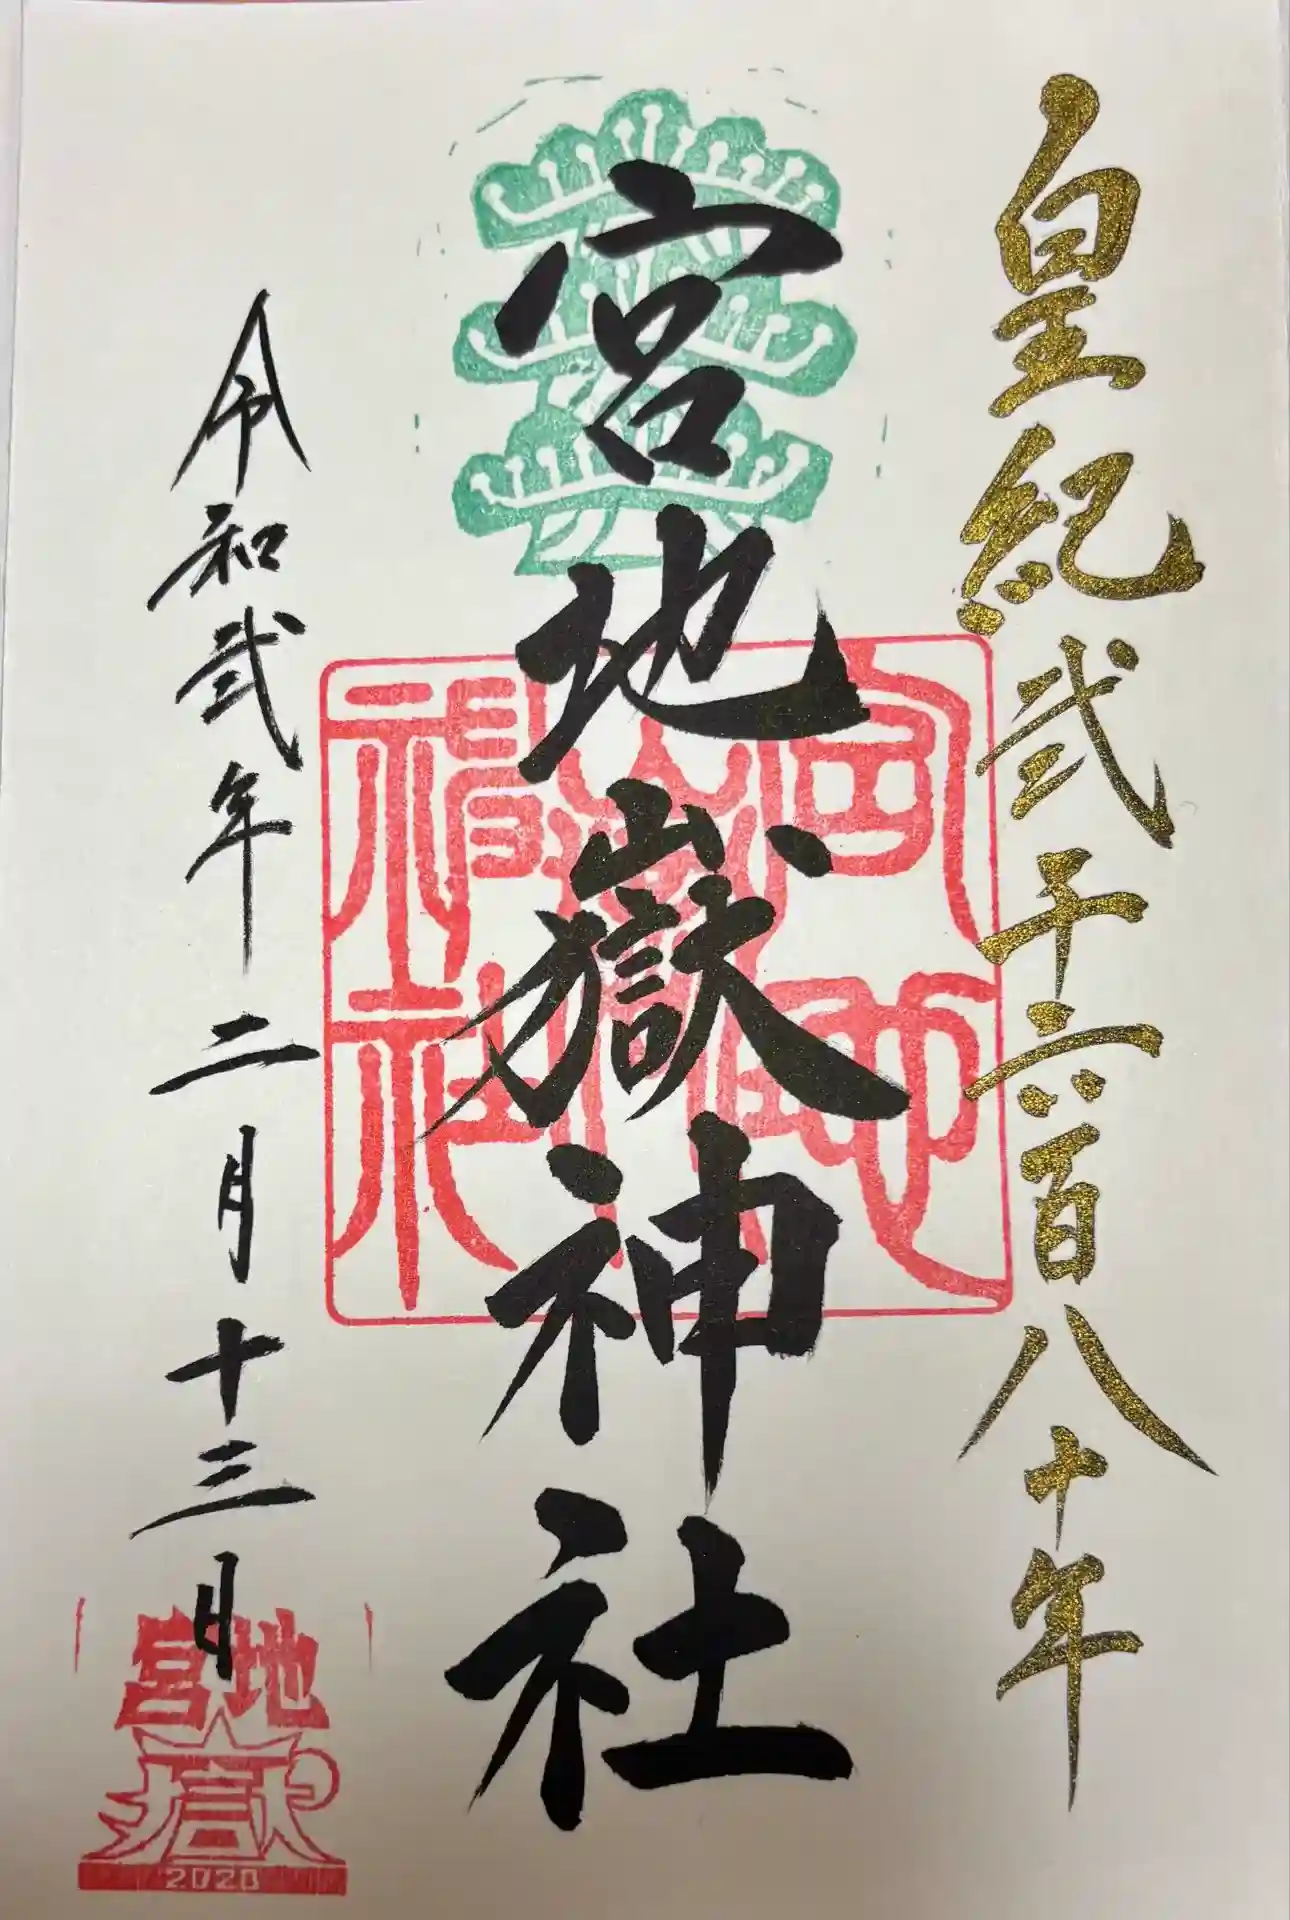 皇紀弐千六百八十年
宮地嶽神社
令和弐年二月十三日
宮地
嶽
2020